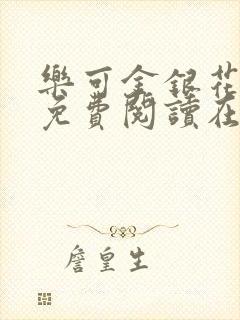 樂可金銀花
免費閱讀在
詹皇生